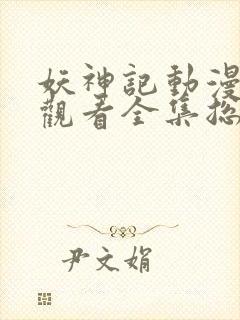 妖神記動漫
觀看全集
尹文娟